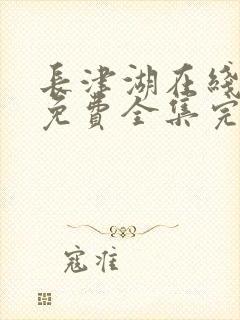 長津湖在綫
免費全集完
寇准